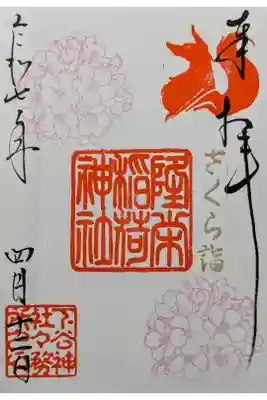 奉拝
さくら詣
隆栄
稲荷
神社
令和七年
四月十二日
下谷神
社々務
所之印